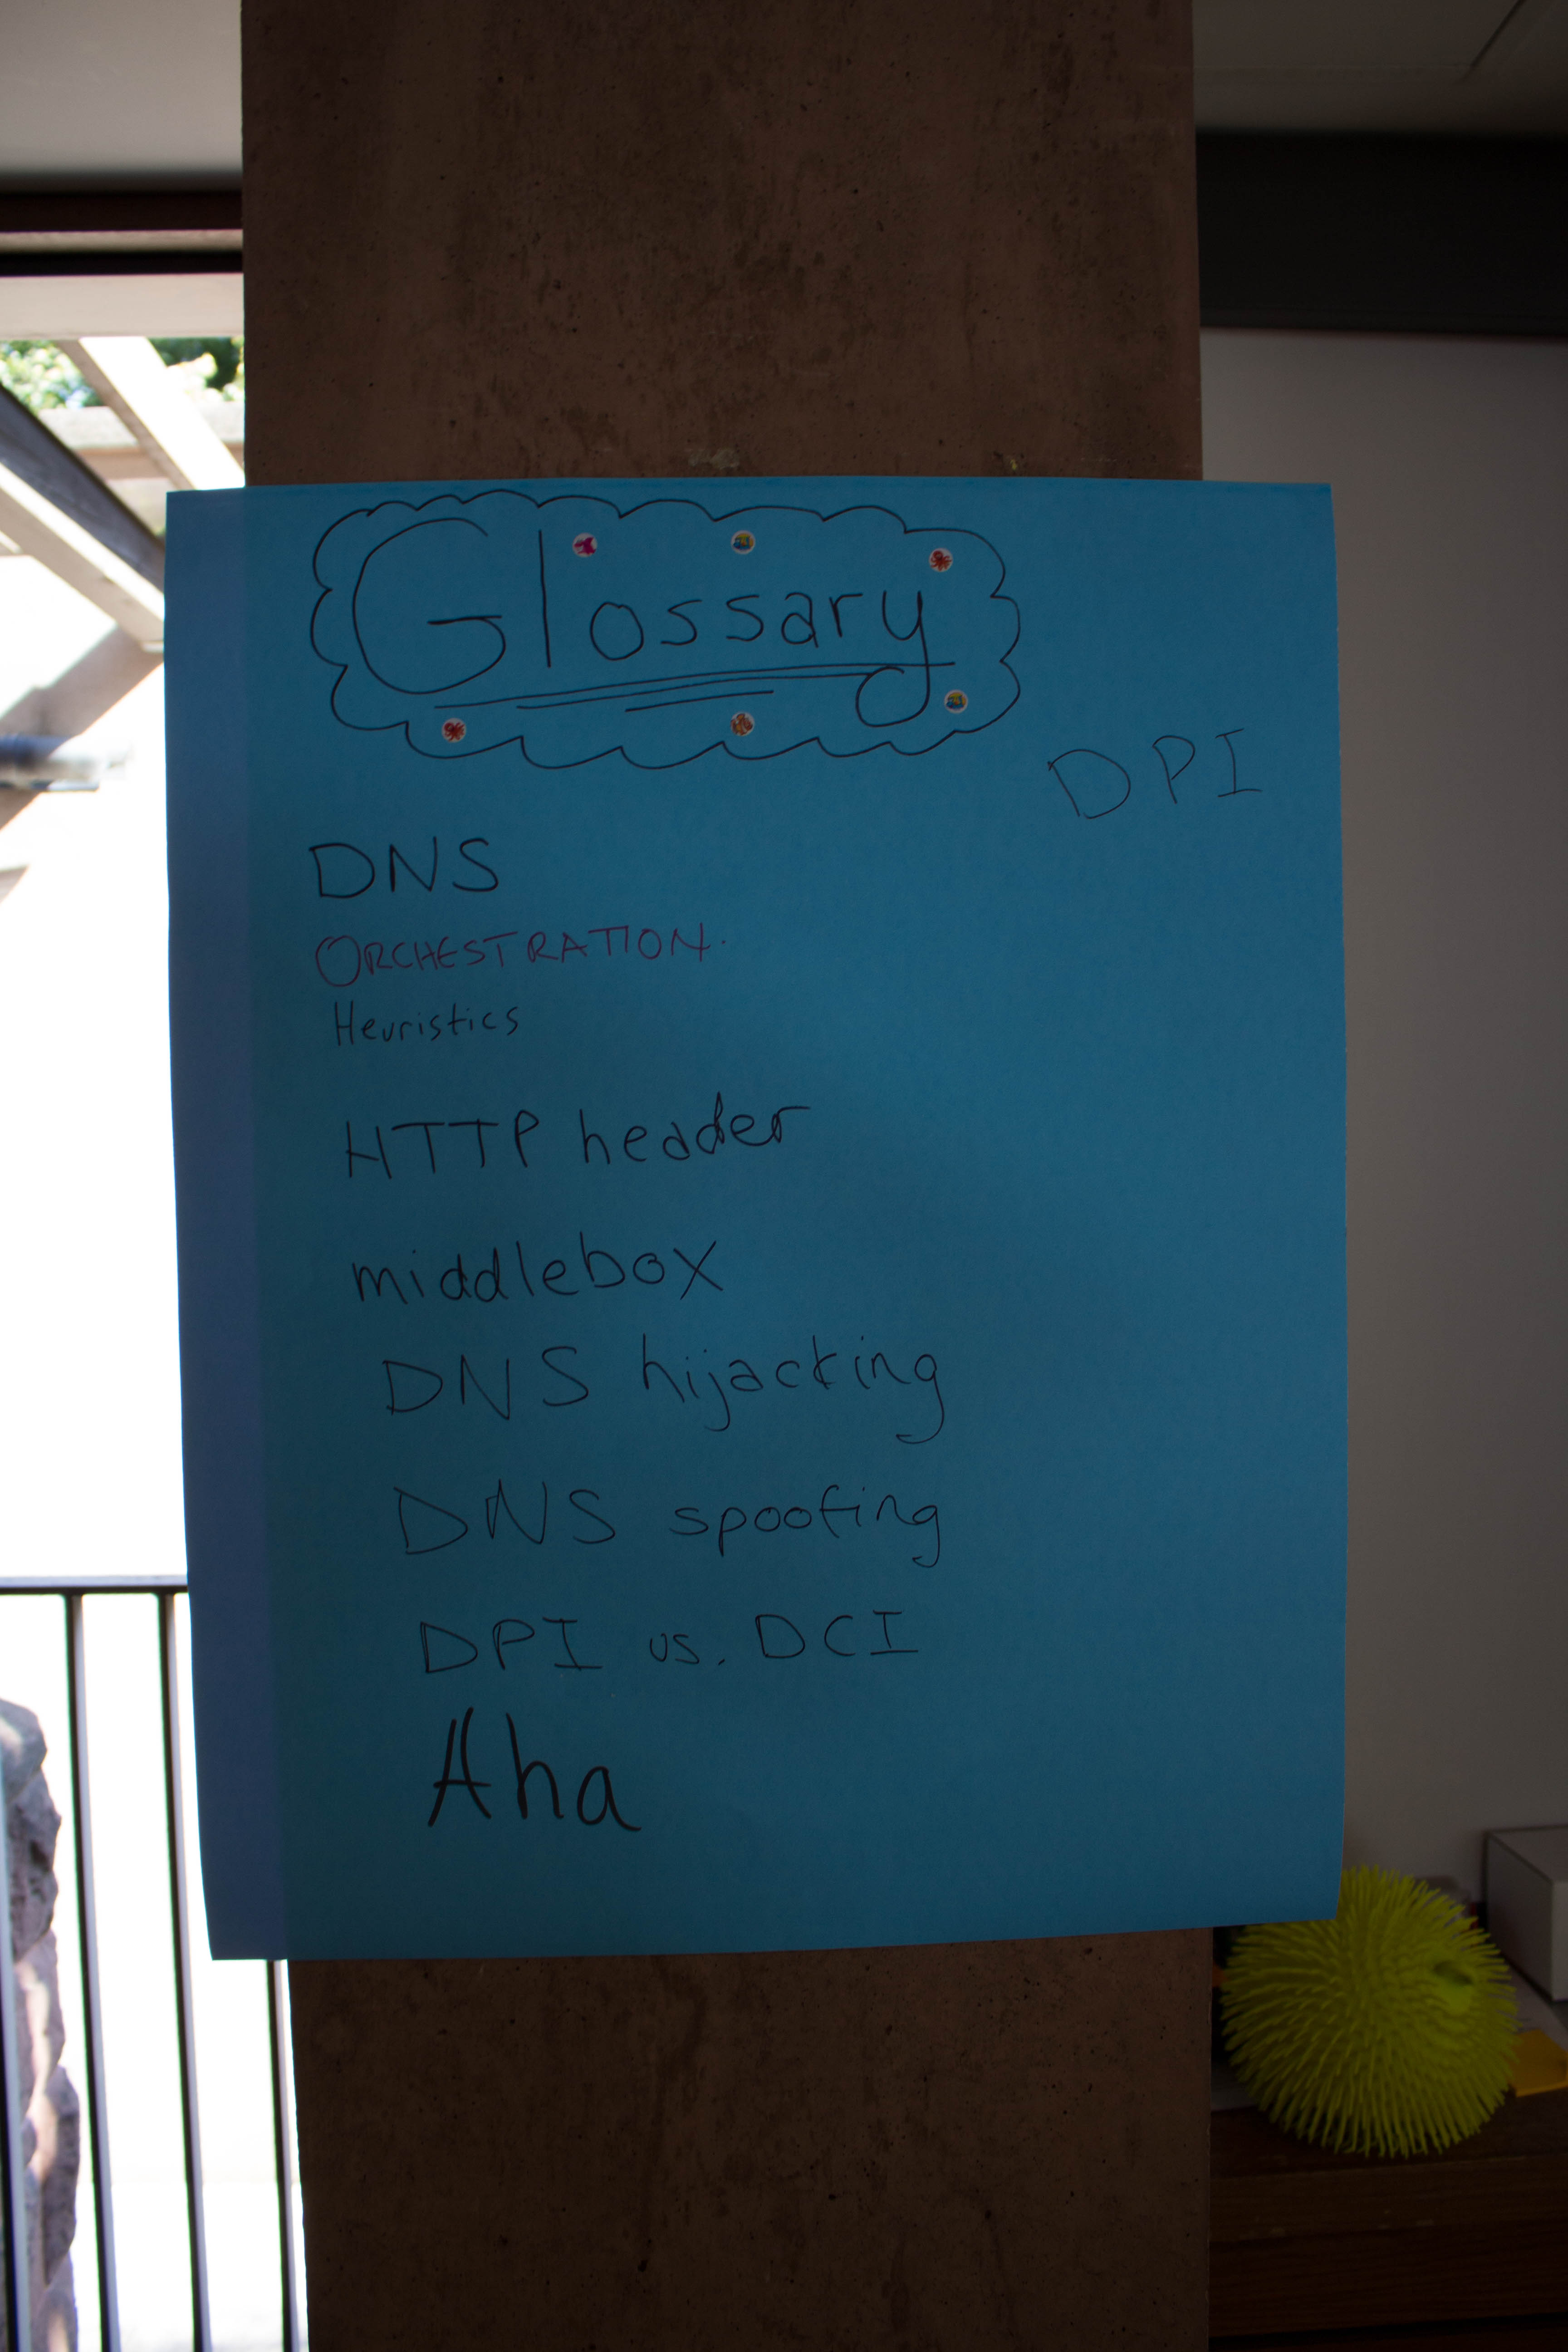 Glossary
DPI
DNS
ORCHESTRATION.
Heuristics
HTTP header
middlebox
DNS hijacking
DNS spoofing
DPI vs. DCI
Aha